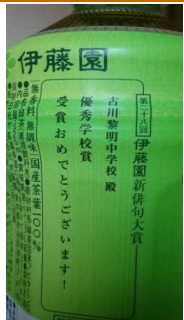 伊藤園
第二十八回
伊藤園新俳句大賞
古川黎明中学校 殿
優秀学校賞
受賞おめでとうございます！
無香料 無調味 国産茶葉一〇〇%